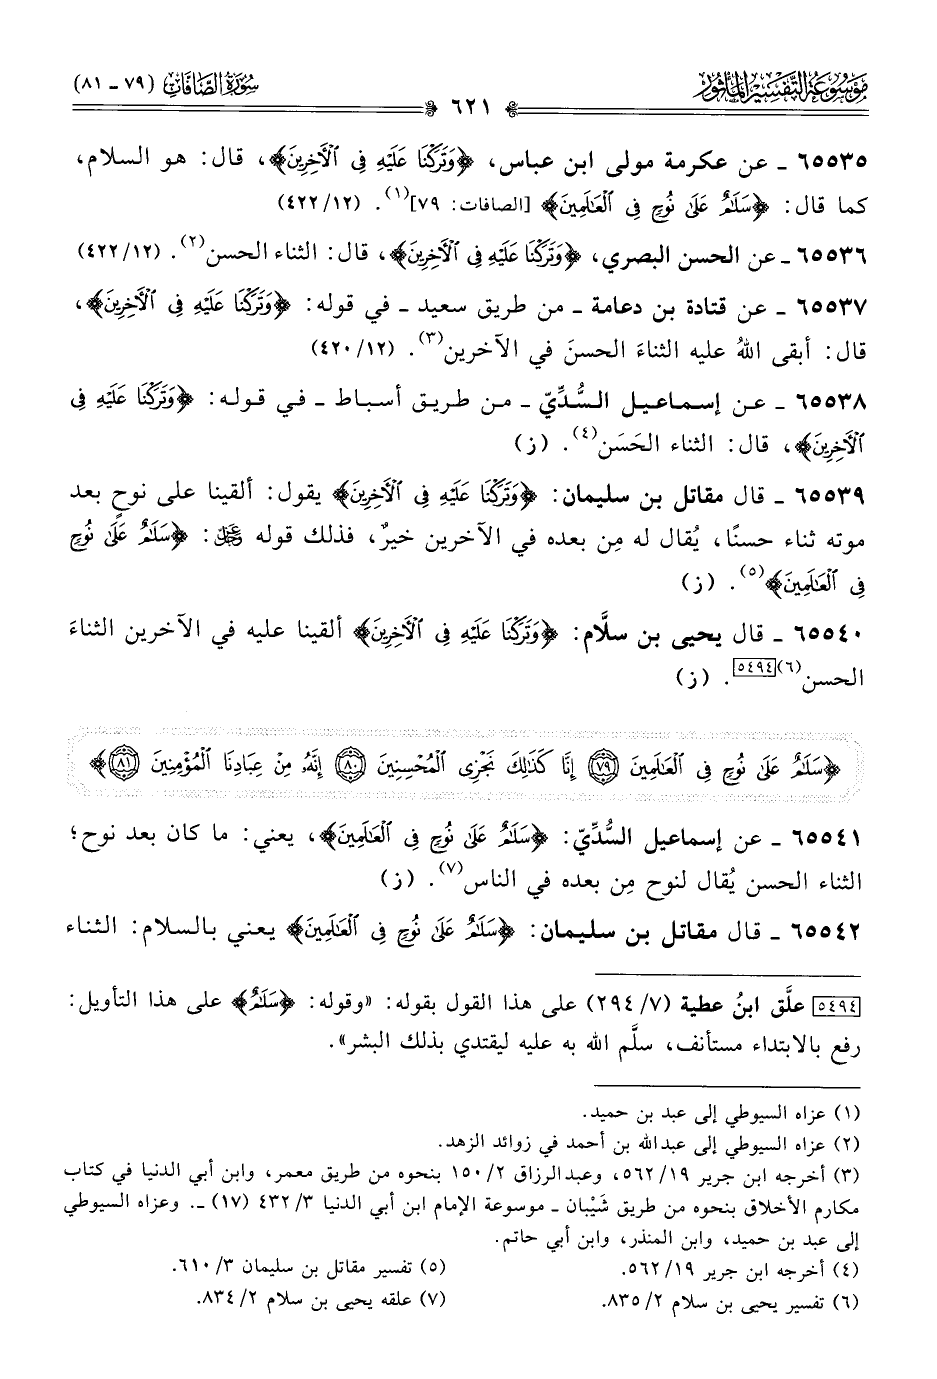 مَوْسُوعَة التَّفْسِير المَأْثُور
سُورَةُ الصَّافَّات (٧٩ - ٨١)
٦٢١
٦٥٥٣٥ ـ عن عكرمة مولى ابن عباس، ﴿وَتَرَكْنَا عَلَيْهِ فِي ٱلْأَخِرِينَ﴾، قال: هو السلام،
كما قال: ﴿سَلَٰمٌ عَلَىٰ نُوحٍ فِي ٱلْعَٰلَمِينَ﴾ [الصافات: ٧٩](١). (١٢/ ٤٢٢)
٦٥٥٣٦ ـ عن الحسن البصري، ﴿وَتَرَكْنَا عَلَيْهِ فِي ٱلْأَخِرِينَ﴾، قال: الثناء الحسن(٢). (١٢/ ٤٢٢)
٦٥٥٣٧ ـ عن قتادة بن دعامة ـ من طريق سعيد ـ في قوله: ﴿وَتَرَكْنَا عَلَيْهِ فِي ٱلْأَخِرِينَ﴾،
قال: أبقى اللهُ عليه الثناءَ الحسنَ في الآخرين(٣). (١٢/ ٤٢٠)
٦٥٥٣٨ ـ عن إسماعيل السُّدِّيّ ـ من طريق أسباط ـ في قوله: ﴿وَتَرَكْنَا عَلَيْهِ فِي
ٱلْأَخِرِينَ﴾، قال: الثناء الحَسَن(٤). (ز)
٦٥٥٣٩ ـ قال مقاتل بن سليمان: ﴿وَتَرَكْنَا عَلَيْهِ فِي ٱلْأَخِرِينَ﴾ يقول: ألقينا على نوحٍ بعد
موته ثناء حسنًا، يُقال له مِن بعده في الآخرين خيرٌ، فذلك قوله ﷿: ﴿سَلَٰمٌ عَلَىٰ نُوحٍ
فِي ٱلْعَٰلَمِينَ﴾(٥). (ز)
٦٥٥٤٠ ـ قال يحيى بن سلَّام: ﴿وَتَرَكْنَا عَلَيْهِ فِي ٱلْأَخِرِينَ﴾ ألقينا عليه في الآخرين الثناءَ
الحسن(٦)[٥٤٩٤]. (ز)
﴿سَلَٰمٌ عَلَىٰ نُوحٍ فِي ٱلْعَٰلَمِينَ ٧٩ إِنَّا كَذَٰلِكَ نَجْزِي ٱلْمُحْسِنِينَ ٨٠ إِنَّهُۥ مِنْ عِبَادِنَا ٱلْمُؤْمِنِينَ ٨١﴾
٦٥٥٤١ ـ عن إسماعيل السُّدِّيّ: ﴿سَلَٰمٌ عَلَىٰ نُوحٍ فِي ٱلْعَٰلَمِينَ﴾، يعني: ما كان بعد نوح؛
الثناء الحسن يُقال لنوح مِن بعده في الناس(٧). (ز)
٦٥٥٤٢ ـ قال مقاتل بن سليمان: ﴿سَلَٰمٌ عَلَىٰ نُوحٍ فِي ٱلْعَٰلَمِينَ﴾ يعني بالسلام: الثناء
[٥٤٩٤] علَّق ابنُ عطية (٧/ ٢٩٤) على هذا القول بقوله: «وقوله: ﴿سَلَٰمٌ﴾ على هذا التأويل:
رفع بالابتداء مستأنف، سلَّم الله به عليه ليقتدي بذلك البشر».
(١) عزاه السيوطي إلى عبد بن حميد.
(٢) عزاه السيوطي إلى عبدالله بن أحمد في زوائد الزهد.
(٣) أخرجه ابن جرير ١٩/ ٥٦٢، وعبدالرزاق ٢/ ١٥٠ بنحوه من طريق معمر، وابن أبي الدنيا في كتاب
مكارم الأخلاق بنحوه من طريق شَيْبان ـ موسوعة الإمام ابن أبي الدنيا ٣/ ٤٣٢ (١٧) ـ. وعزاه السيوطي
إلى عبد بن حميد، وابن المنذر، وابن أبي حاتم.
(٤) أخرجه ابن جرير ١٩/ ٥٦٢.
(٥) تفسير مقاتل بن سليمان ٣/ ٦١٠.
(٦) تفسير يحيى بن سلام ٢/ ٨٣٥.
(٧) علقه يحيى بن سلام ٢/ ٨٣٤.